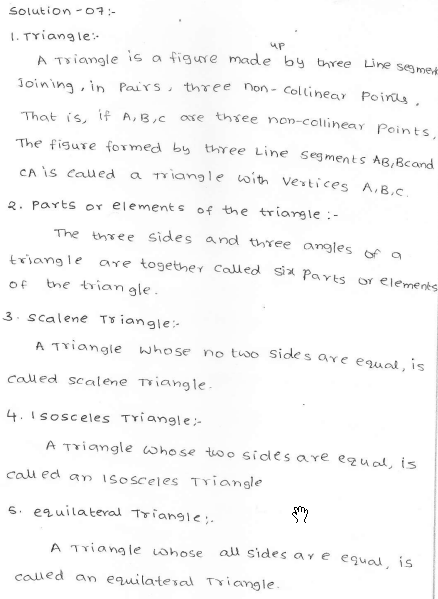 Solution-07:-
1. Triangle:-
up
A Triangle is a figure made by three Line segment
Joining, in Pairs, three non-collinear Points,
That is, if A,B,C are three non-collinear Points,
The figure formed by three Line segments AB,BC and
CA is called a Triangle with vertices A,B,C.
2. Parts or elements of the triangle:-
The three sides and three angles of a
triangle are together called six Parts or elements
of the triangle.
3. Scalene Triangle:-
A Triangle whose no two sides are equal, is
called scalene Triangle.
4. Isosceles Triangle:-
A Triangle whose two sides are equal, is
called an Isosceles Triangle
5. equilateral Triangle:-
A Triangle whose all sides are equal, is
called an equilateral Triangle.